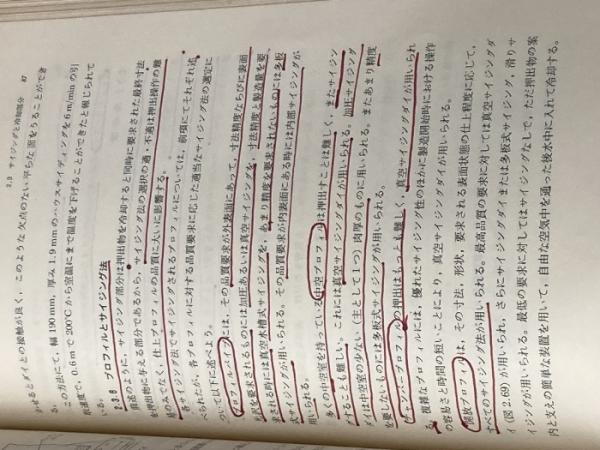 2.3 サイジングと冷却部分 87
かするとダイとの接触が良く，このような欠点のない平らな面をうることができ
る．
この方法にて，幅 190 mm，厚み 1.9 mm のハウスサイディングを 6 m/min の引
取速度で，0.6 m で 200℃ から室温にまで温度を下げることができたと報じられて
いる．
2.3.6 プロフィルとサイジング法
前述のように，サイジング部分は押出物を冷却すると同時に要求された最終寸法
を押出物に与える部分であるから，サイジング法の選択の適・不適は押出操作の難
易のみでなく，仕上プロフィルの品質に大いに影響する．
各サイジング法でサイジングされるプロフィルについては，前項にてそれぞれ述
べられたが，各プロフィルに対する品質要求に応じた適当なサイジング法の選定に
ついて以下に述べよう．
プロフィルパイプには，その品質要求が外表面にあって，寸法精度ならびに表面
光沢を要求されるものには加圧あるいは真空サイジングを，寸法精度と製造量を要
求される時には真空水槽式サイジングを，あまり精度を要求されないものには多板
式サイジングが用いられる．その品質要求が内表面にある時には内部サイジングが
用いられる．
多くの中空室を持っている中空プロフィルは押出すことは難しく，またサイジン
グすることも難しい．これには真空サイジングダイが用いられる．加圧サイジング
ダイは中空室の少ない（主として1つ）肉厚のものに用いられる．またあまり精度
を要しないものには多板式サイジングが用いられる．
チャンバープロフィルの押出はもっとも難しく，真空サイジングダイが用いられ
る．
複雑なプロフィルには，優れたサイジング性のほかに製造開始時における操作
の容易さと時間の短いことにより，真空サイジングダイが用いられる．
開放プロフィルは，その寸法，形状，要求される表面状態の仕上程度に応じて，
すべてのサイジング法が用いられる．最高品質の要求に対しては真空サイジングダ
イ（図 2.69）が用いられ，さらにサイジングダイまたは多板式サイジング，滑りサ
イジングが用いられる．最低の要求に対してはサイジングなしで，ただ押出物の案
内と支えの簡単な装置を用いて，自由な空気中を通った後水中に入れて冷却する．